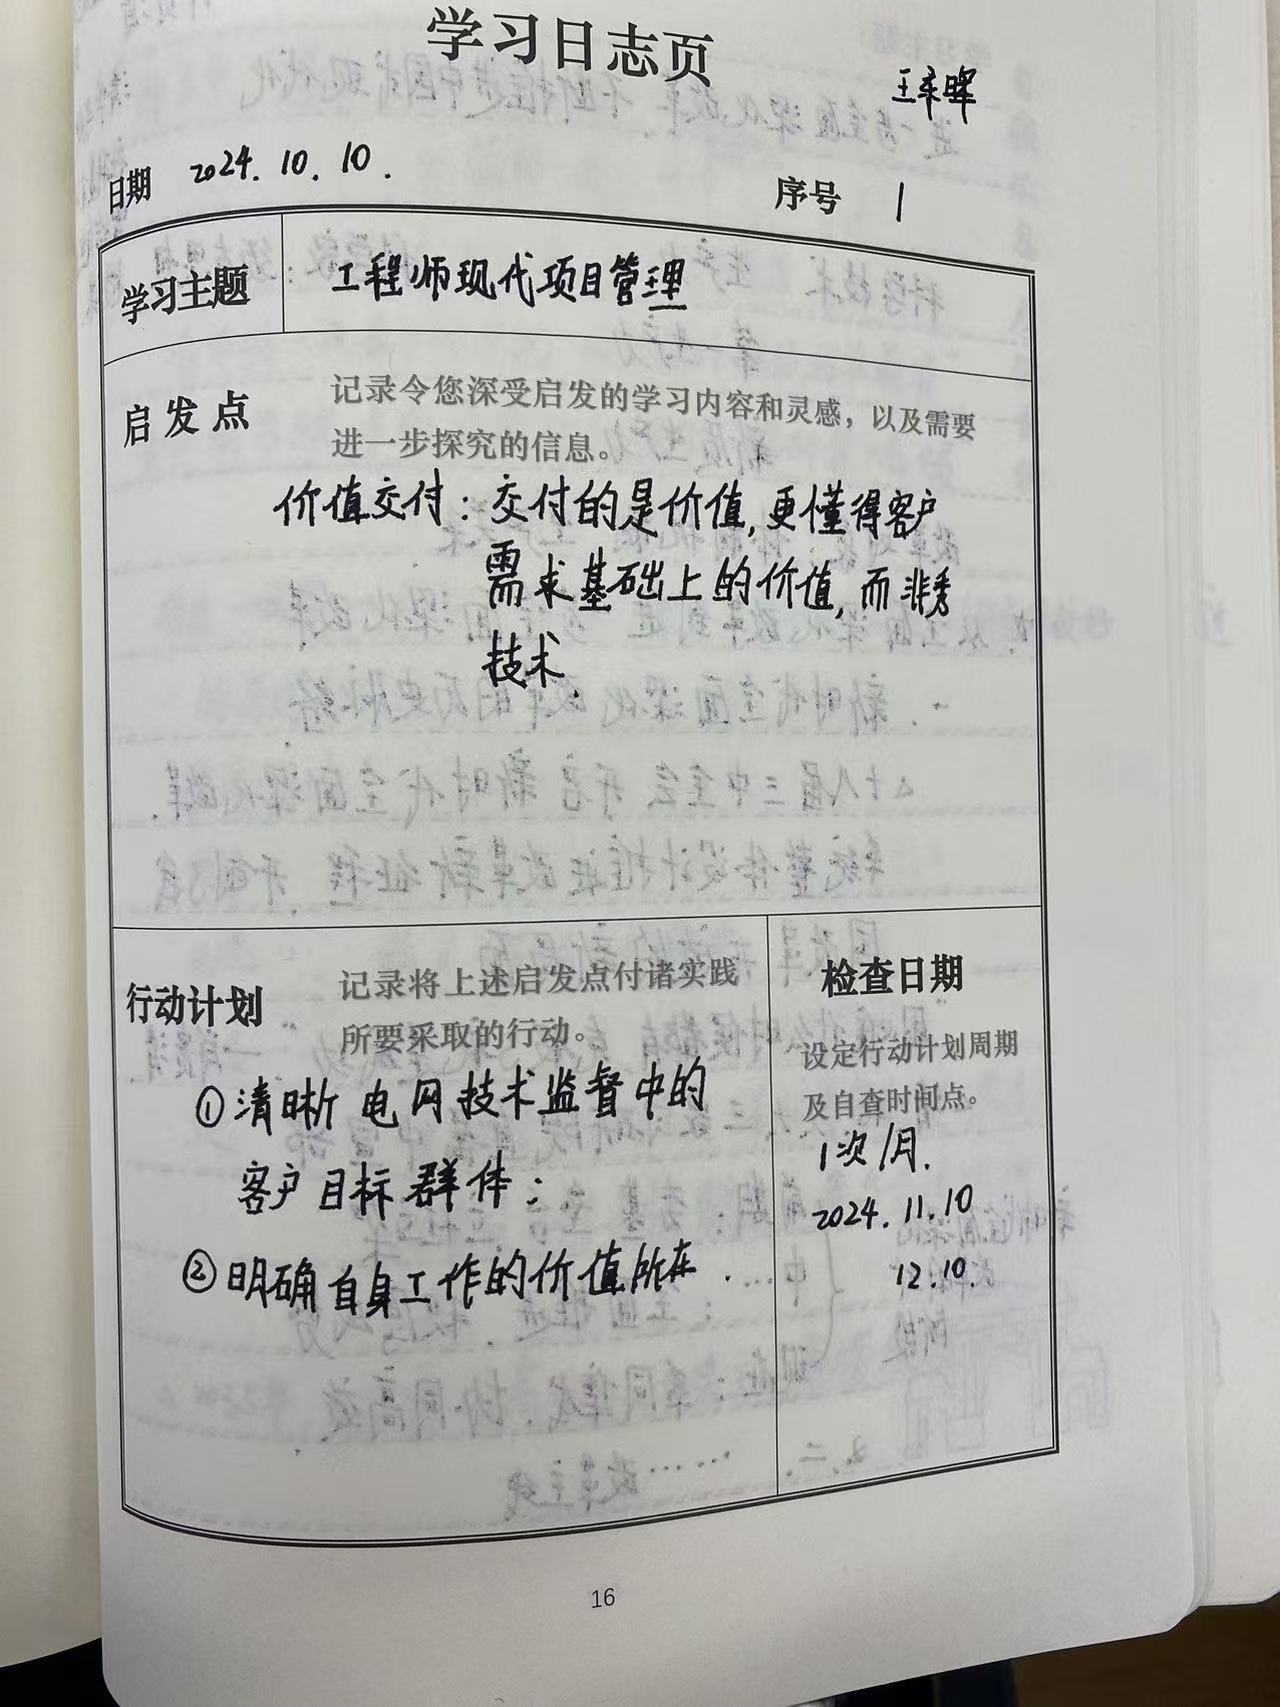 学习日志页
日期 2024.10.10.
序号 1
学习主题 工程师现代项目管理
启发点 记录令您深受启发的学习内容和灵感，以及需要
进一步探究的信息。
价值交付：交付的是价值,更懂得客户
需求基础上的价值,而非秀
技术.
行动计划 记录将上述启发点付诸实践
所要采取的行动。
①清晰电网技术监督中的
客户目标群体；
②明确自身工作的价值所在.
检查日期
设定行动计划周期
及自查时间点。
1次/月.
2024.11.10
12.10.
16